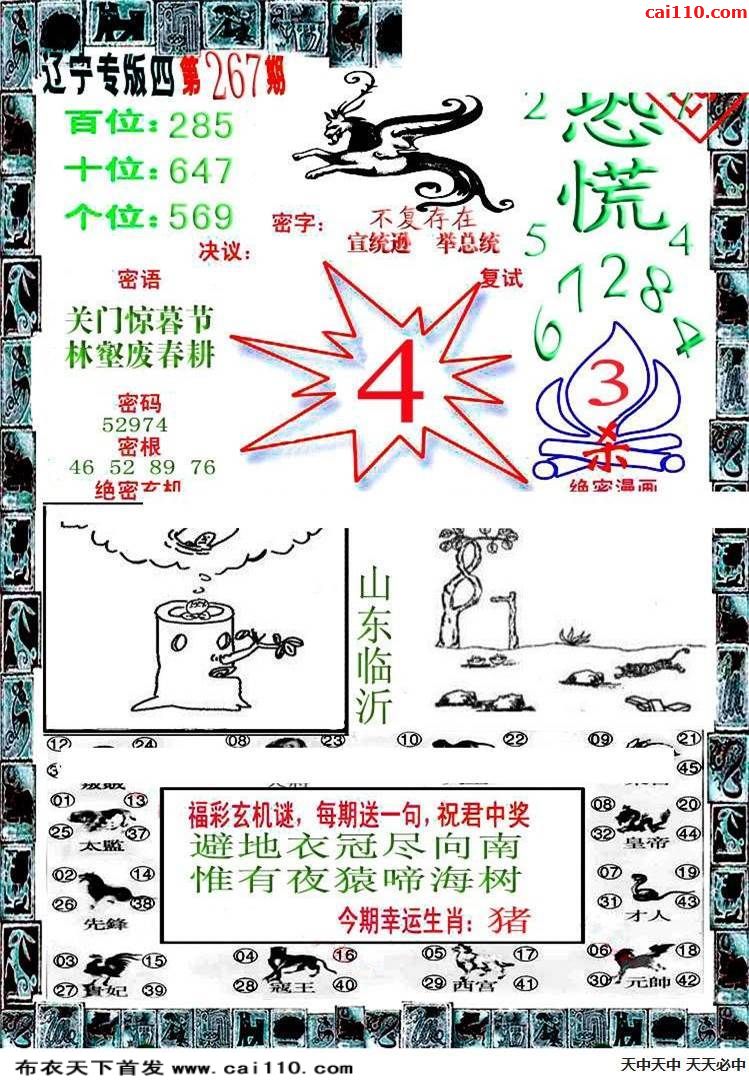 cai110.com
辽宁专版四第267期
百位：285
十位：647
个位：569
恐
慌
2
5
4
6 7 2 8 4
密字：不复存在
宣统逊 举总统
决议：
复试
密语
关门惊暮节
林壑废春耕
4
3
杀
密码
52974
密根
46 52 89 76
绝密玄机
绝密漫画
山东临沂
12 24
08 23
10 22
09 21
45
01 13
25 37
太监
02 14
26 38
先鋒
03 15
27 39
貴妃
04 16
28 40
寇王
05 17
29 41
西宫
06 18
30 42
元帥
07 19
31 43
才人
08 20
32 44
皇帝
福彩玄机谜，每期送一句，祝君中奖
避地衣冠尽向南
惟有夜猿啼海树
今期幸运生肖：猪
布衣天下首发 www.cai110.com
天中天中 天天必中